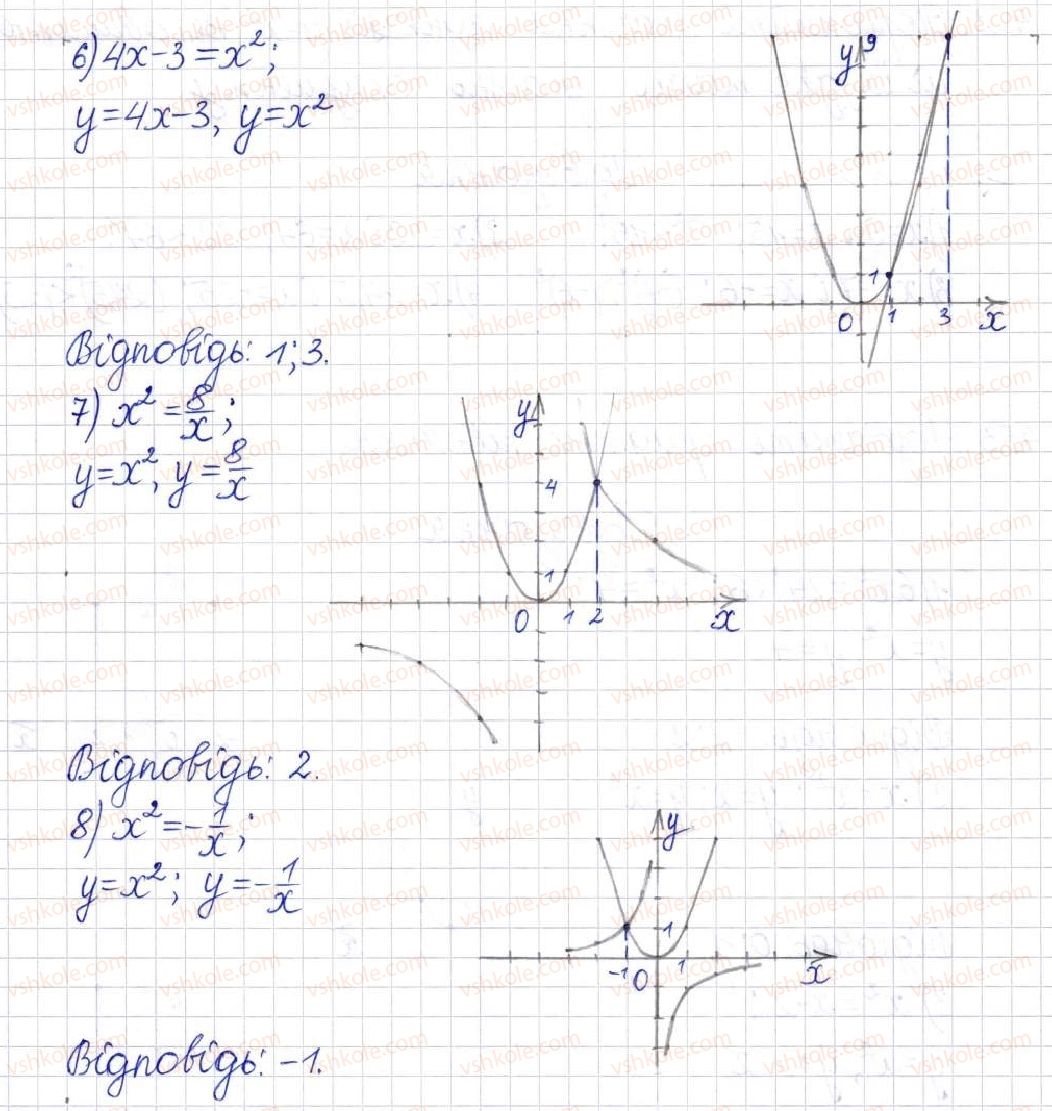 6) 4x-3=x²;
y=4x-3, y=x²
y 9
1
0 1 3 x
Відповідь: 1; 3.
7) x²=8/x;
y=x², y=8/x
y
4
1
0 1 2 x
Відповідь: 2.
8) x²=-1/x;
y=x²; y=-1/x
y
1
-1 0 1 x
Відповідь: -1.
vshkole.com